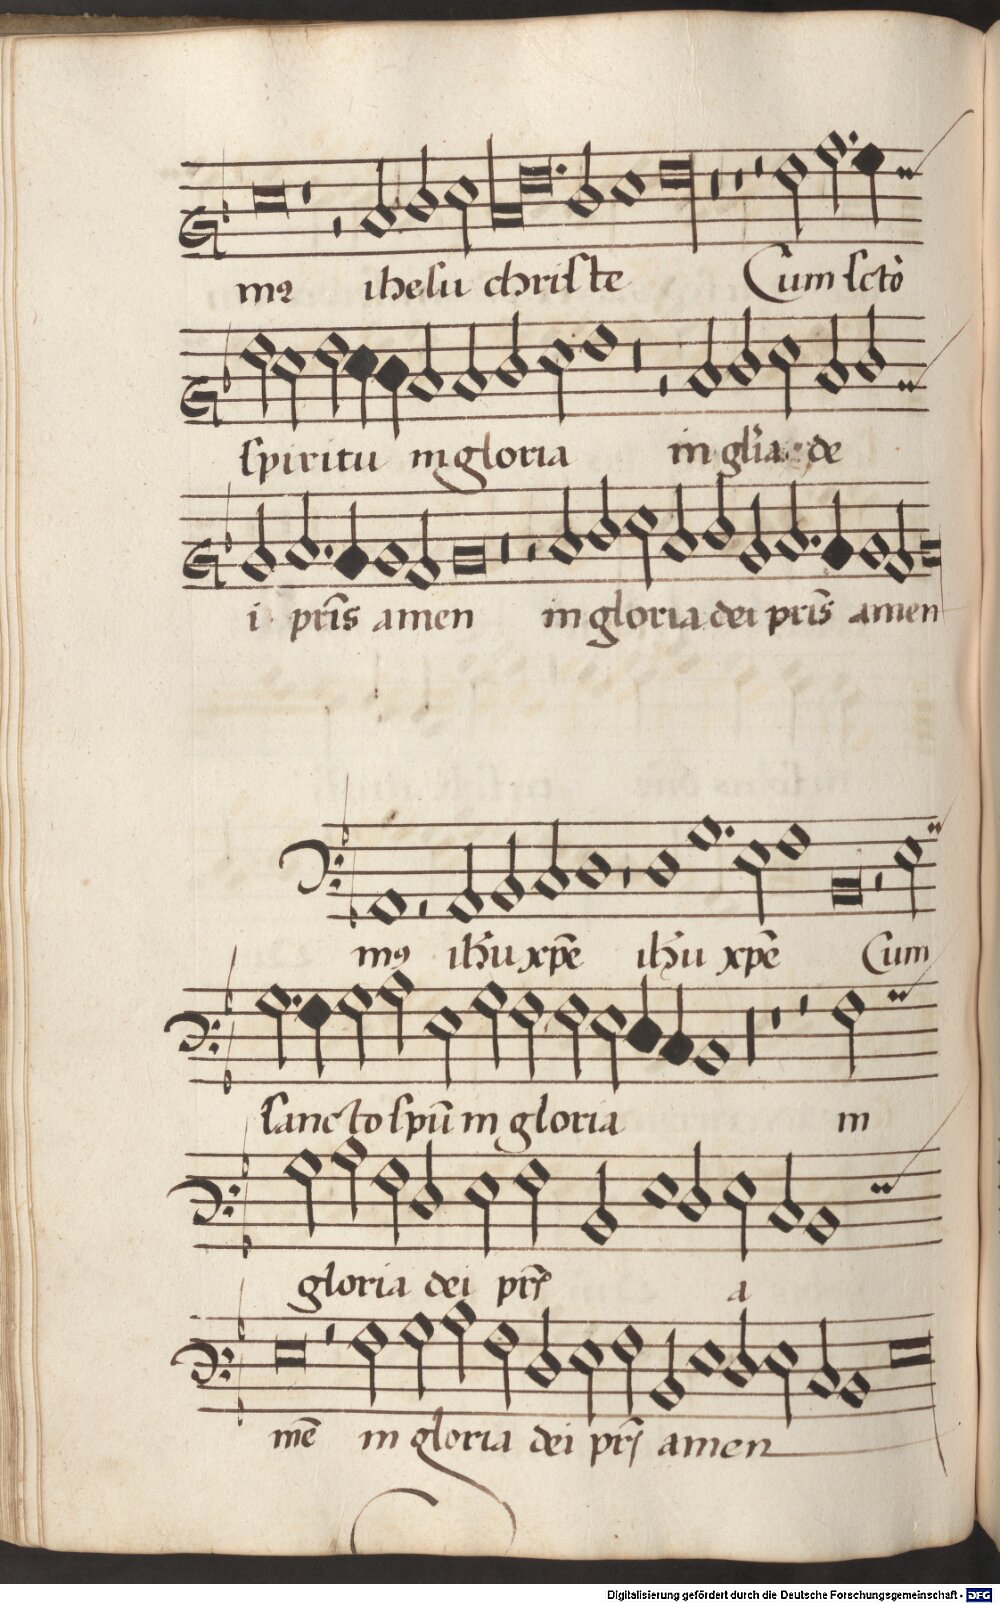 mꝰ ihesu christe Cum sctõ
spiritu in gloria in gl̃ia de
i pr̃is amen in gloria dei pr̃is amen
mꝰ ih̃u xp̃e ih̃u xp̃e Cum
sancto sp̃u in gloria in
gloria dei pr̃is a
mẽ in gloria dei pr̃is amen
Digitalisierung gefördert durch die Deutsche Forschungsgemeinschaft - DFG